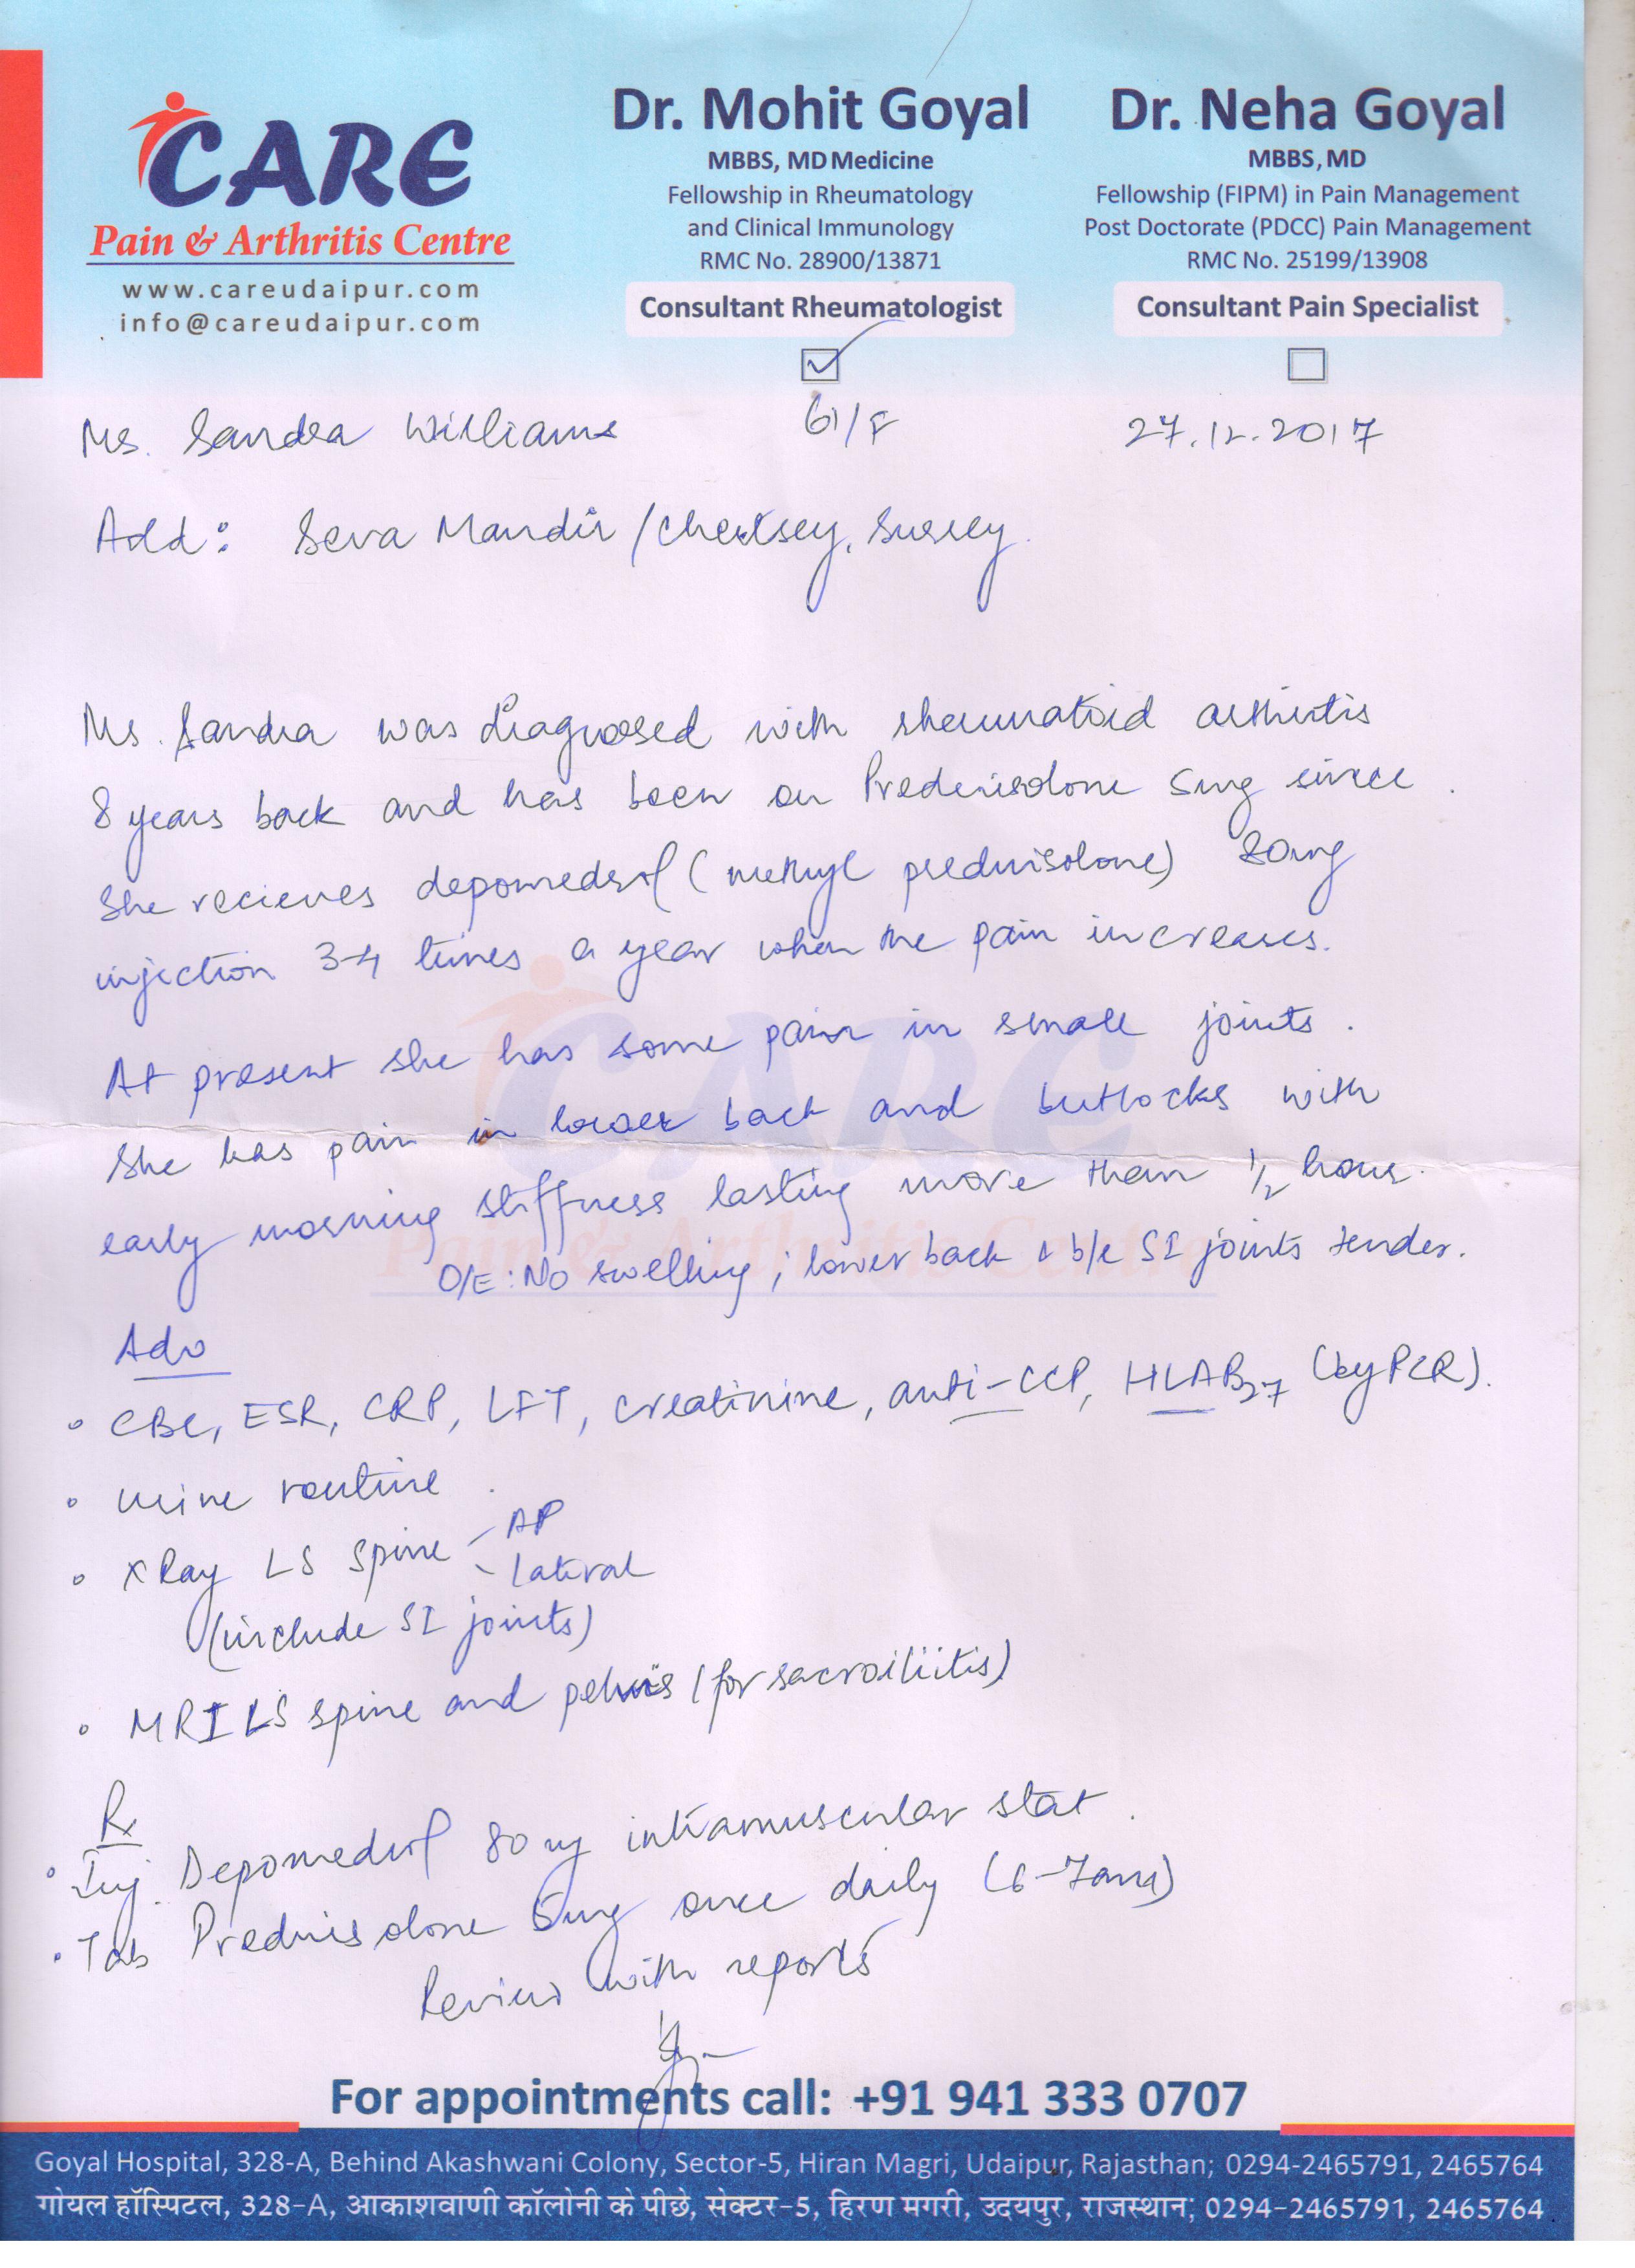 CARE
Pain & Arthritis Centre
www.careudaipur.com
info@careudaipur.com
Dr. Mohit Goyal
MBBS, MD Medicine
Fellowship in Rheumatology
and Clinical Immunology
RMC No. 28900/13871
Consultant Rheumatologist
Dr. Neha Goyal
MBBS, MD
Fellowship (FIPM) in Pain Management
Post Doctorate (PDCC) Pain Management
RMC No. 25199/13908
Consultant Pain Specialist
Ms. Sandra Williams 61/F 27.12.2017
Add: Seva Mandir / Chertsey, Surrey.
Ms. Sandra was diagnosed with rheumatoid arthritis
8 years back and has been on Predenisolone 5mg since.
She recieves depomedrol (methyl prednisolone) 80mg
injection 3-4 times a year when the pain increases.
At present she has some pain in small joints.
She has pain in lower back and buttocks with
early morning stiffness lasting more than 1/2 hour.
O/E: No swelling; lower back & b/l SI joints tender.
Adv
• CBC, ESR, CRP, LFT, creatinine, anti-CCP, HLAB27 (by PCR).
• urine routine.
• X Ray LS spine - AP
- lateral
(include SI joints)
• MRI LS spine and pelvis (for sacroiliitis)
Rx
• Inj. Depomedrol 80 mg intramuscular stat.
• Tab Prednisolone 5mg once daily (6-7am)
Review with reports
For appointments call: +91 941 333 0707
Goyal Hospital, 328-A, Behind Akashwani Colony, Sector-5, Hiran Magri, Udaipur, Rajasthan; 0294-2465791, 2465764
गोयल हॉस्पिटल, 328-A, आकाशवाणी कॉलोनी के पीछे, सेक्टर-5, हिरण मगरी, उदयपुर, राजस्थान; 0294-2465791, 2465764